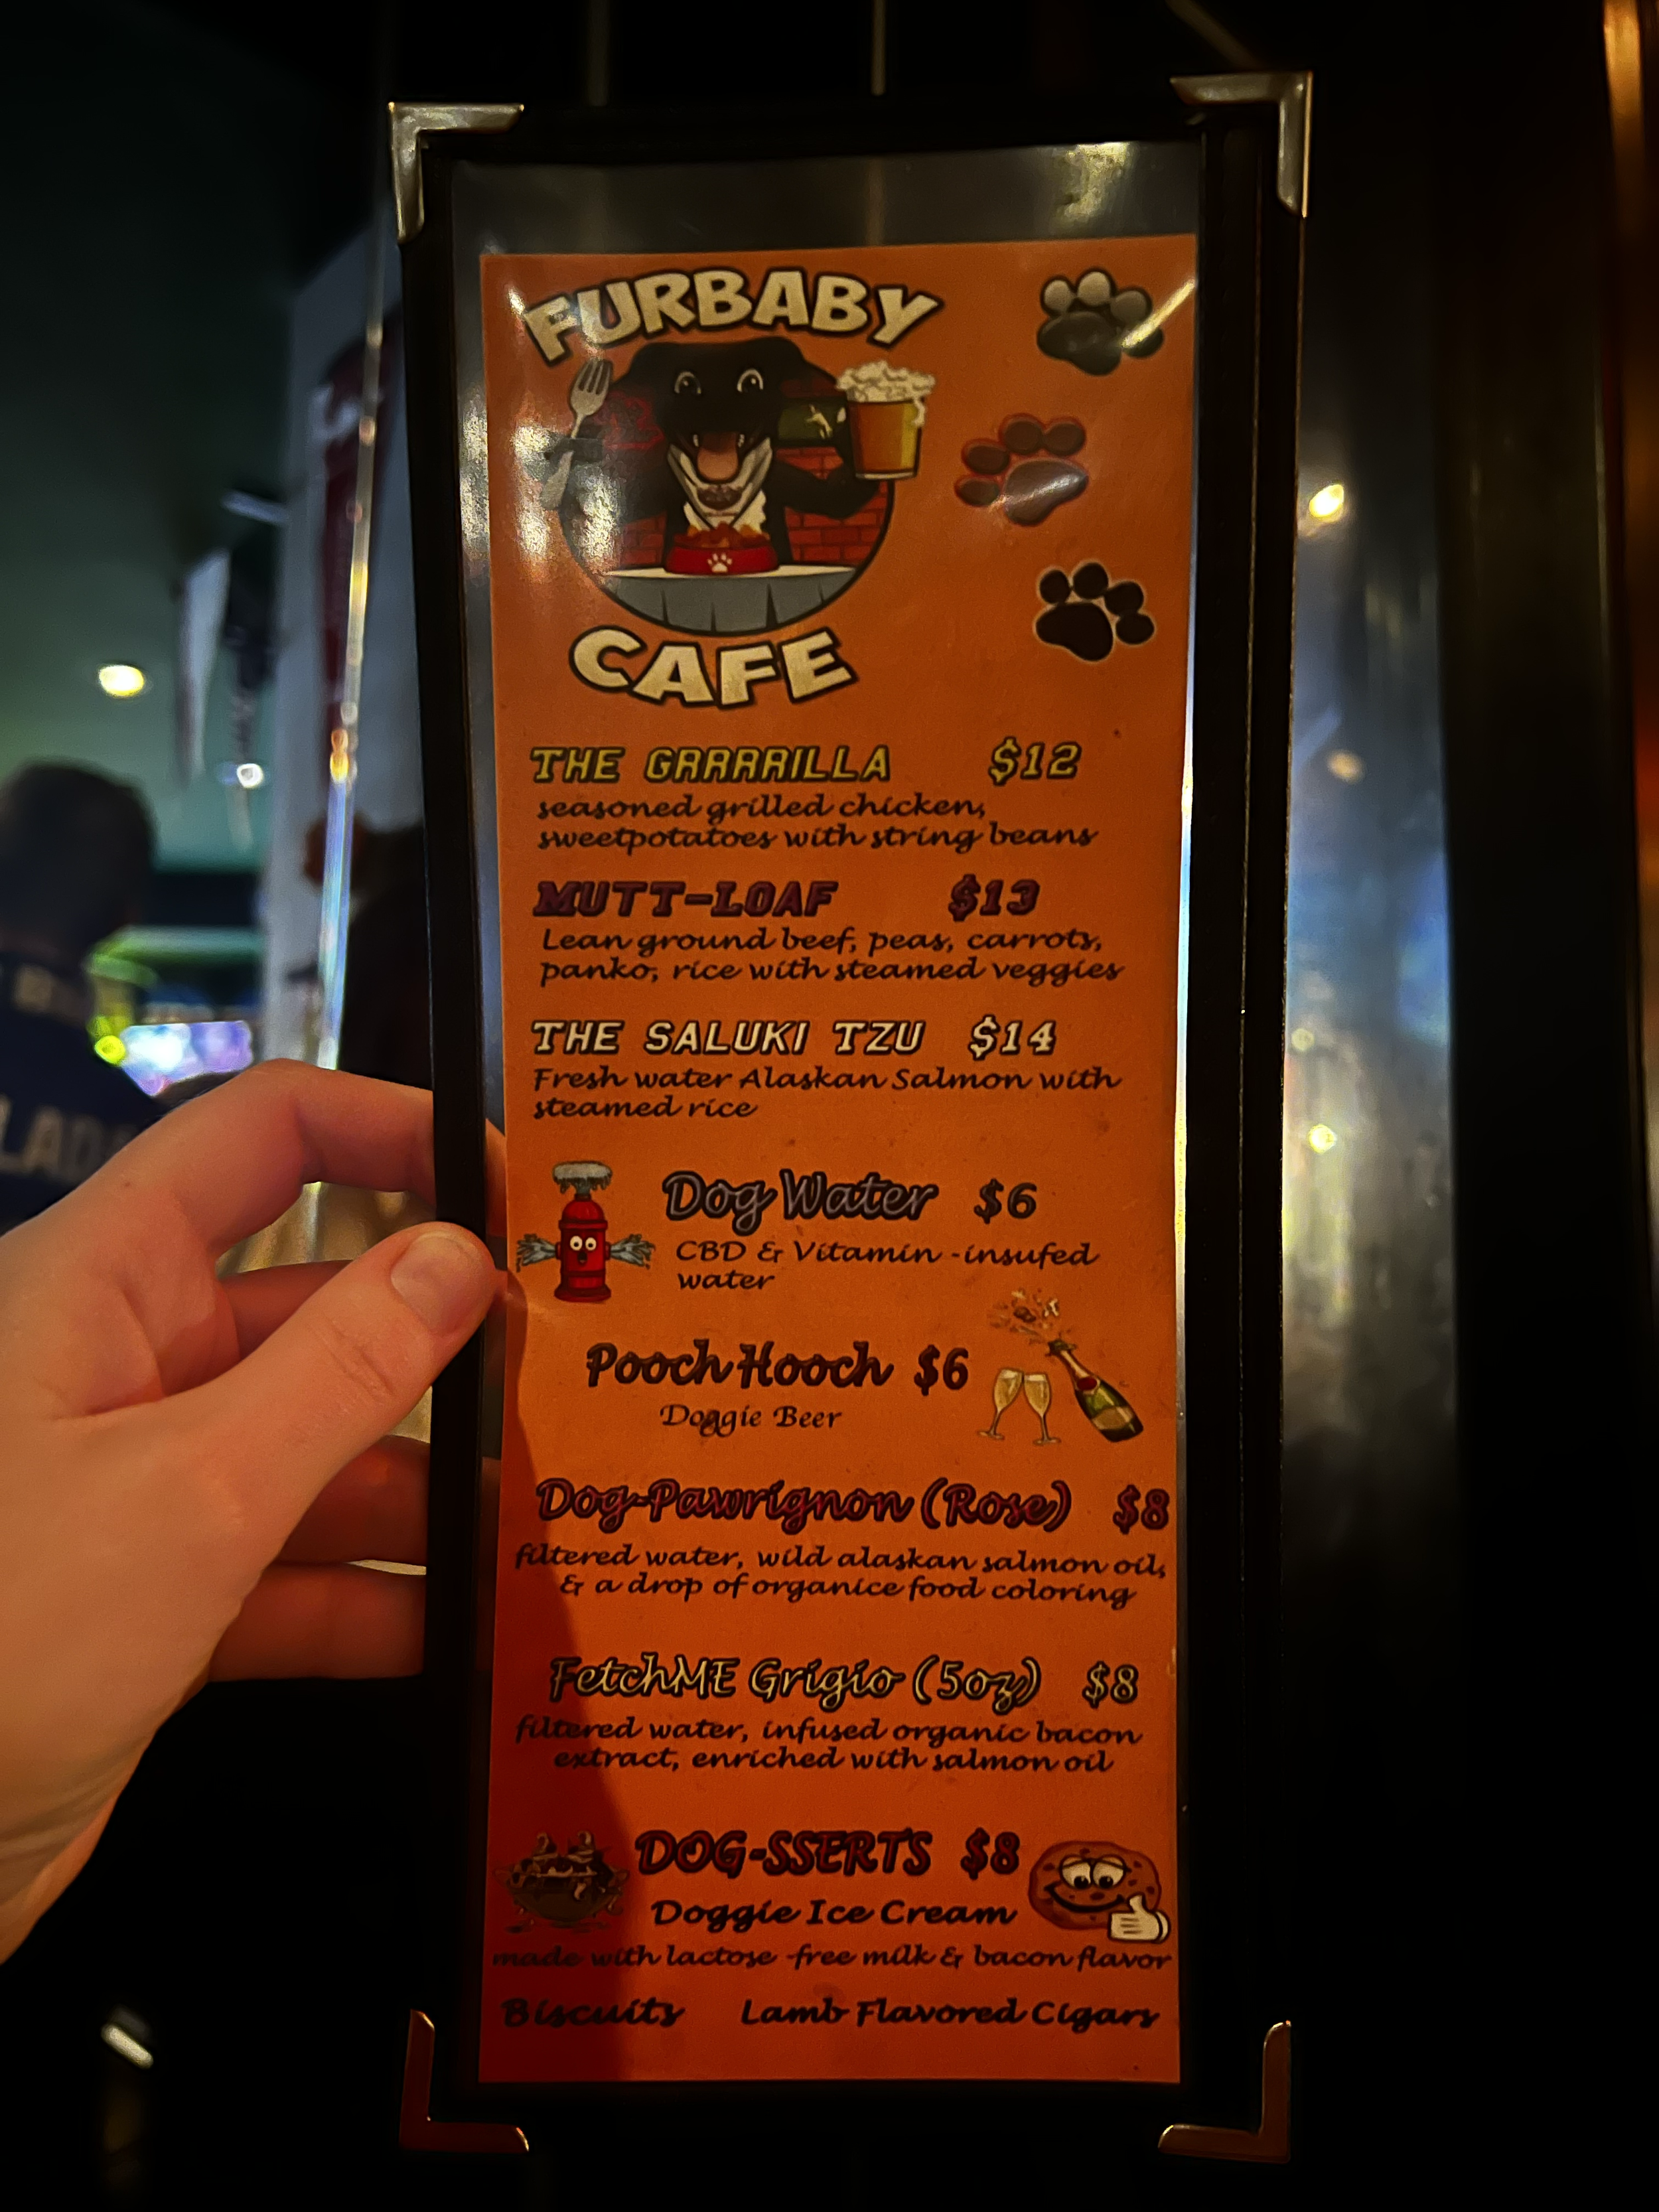 FURBABY
CAFE
THE GRRRRILLA $12
seasoned grilled chicken,
sweetpotatoes with string beans
MUTT-LOAF $13
Lean ground beef, peas, carrots,
panko, rice with steamed veggies
THE SALUKI TZU $14
Fresh water Alaskan Salmon with
steamed rice
Dog Water $6
CBD & Vitamin -insufed
water
Pooch Hooch $6
Doggie Beer
Dog-Pawrignon (Rose) $8
filtered water, wild alaskan salmon oil,
& a drop of organice food coloring
FetchME Grigio (5oz) $8
filtered water, infused organic bacon
extract, enriched with salmon oil
DOG-SSERTS $8
Doggie Ice Cream
made with lactose -free milk & bacon flavor
Biscuits Lamb Flavored Cigars